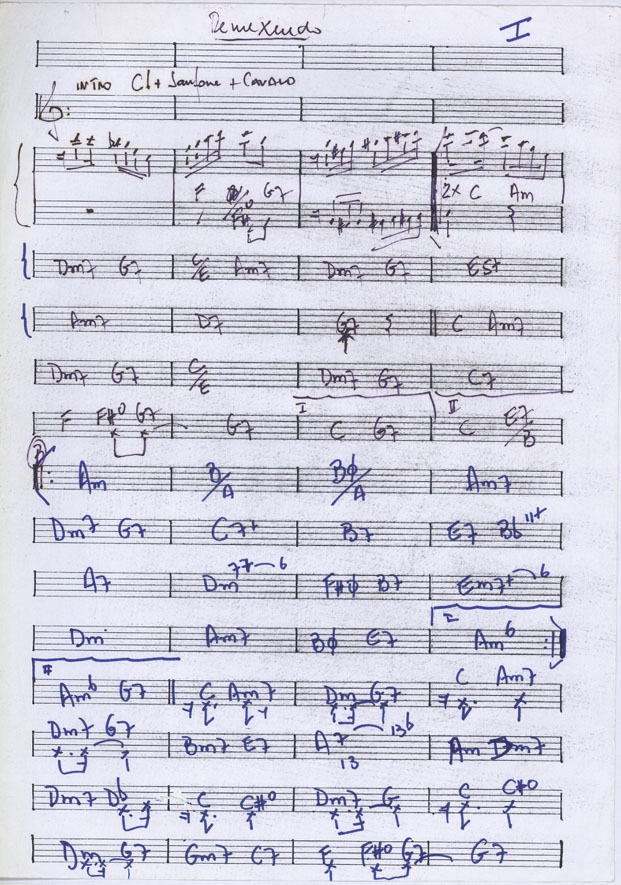 Remexendo I
INTRO Cl + Sanfona + CAVACO
F G7 2x C Am
F#º
Dm7 G7 C/E Am7 Dm7 G7 E5+
Am7 D7 G7 C Am7
Dm7 G7 C/E Dm7 G7 C7
I II
F F#º G7 G7 C G7 C E7/B
B
Am B/A Bø/A Am7
Dm7 G7 C7+ B7 E7 Bb11+
A7 Dm 77 6 F#ø B7 Em7+ 6
I
Dm Am7 Bø E7 Am6
II
Am6 G7 C Am7 Dm G7 C Am7
Dm7 G7 Bm7 E7 A7 13 13b Am Dm7
Dm7 Db C C#º Dm7 G C C#º
Dm G7 Gm7 C7 F F#º G7 G7